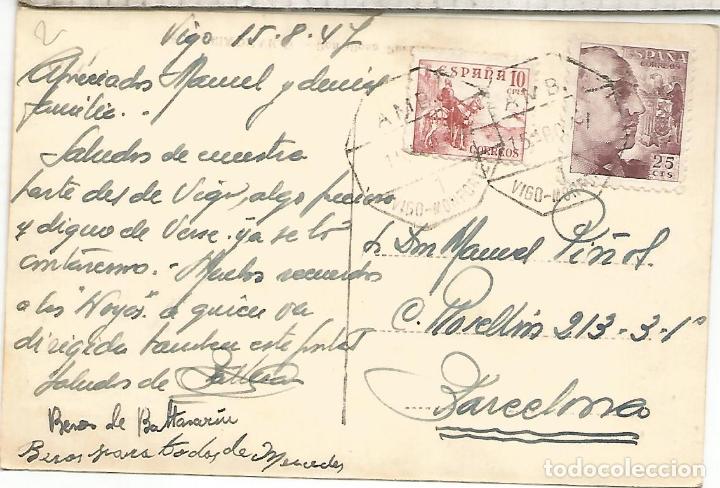 Vigo 15-8-47
Apreciados Manuel y demás
familia.-
Saludos de nuestra
parte des de Vigo, algo precioso
y digno de Verse. ya se lo
contaremos.- Muchos recuerdos
a los "Noyos" a quien va
dirigida tambien este postal
Saludos de
Besos de Baltasarín
Besos para todos de Mercedes
ESPAÑA 10 CTS
CORREOS
ESPAÑA
CORREOS
25 CTS
AMB.
VIGO-MONFORTE
AMB.
VIGO-
Sr. Don Manuel Piñol.
C. Rosellón 213-3-1º
Barcelona
todocoleccion